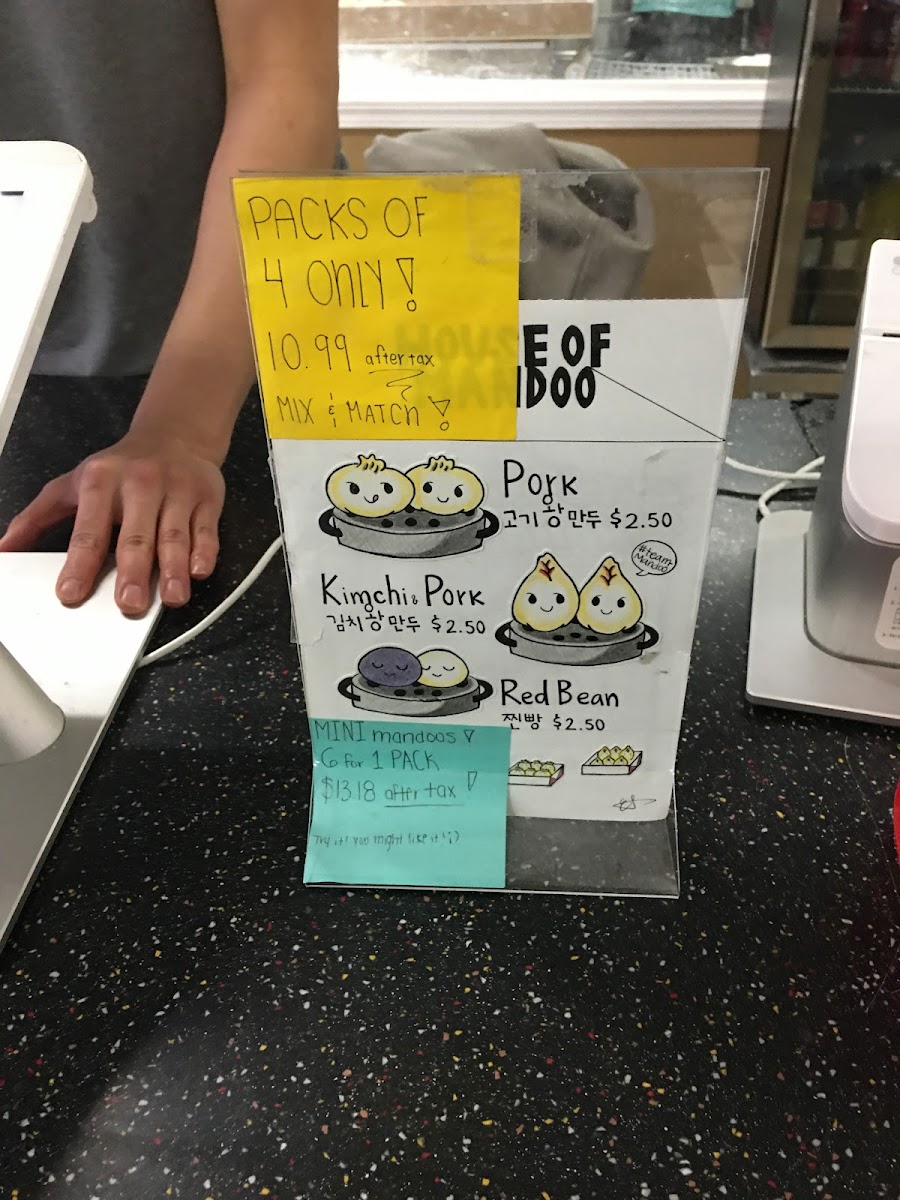 PACKS OF
4 ONLY!
10.99 after tax
MIX & MATCH!
HOUSE OF
MANDOO
Pork
고기왕만두 $2.50
#team
Mandoo
Kimchi & Pork
김치왕만두 $2.50
Red Bean
찐빵 $2.50
MINI mandoos!
6 for 1 PACK
$13.18 after tax!
Try it! You might like it! :)